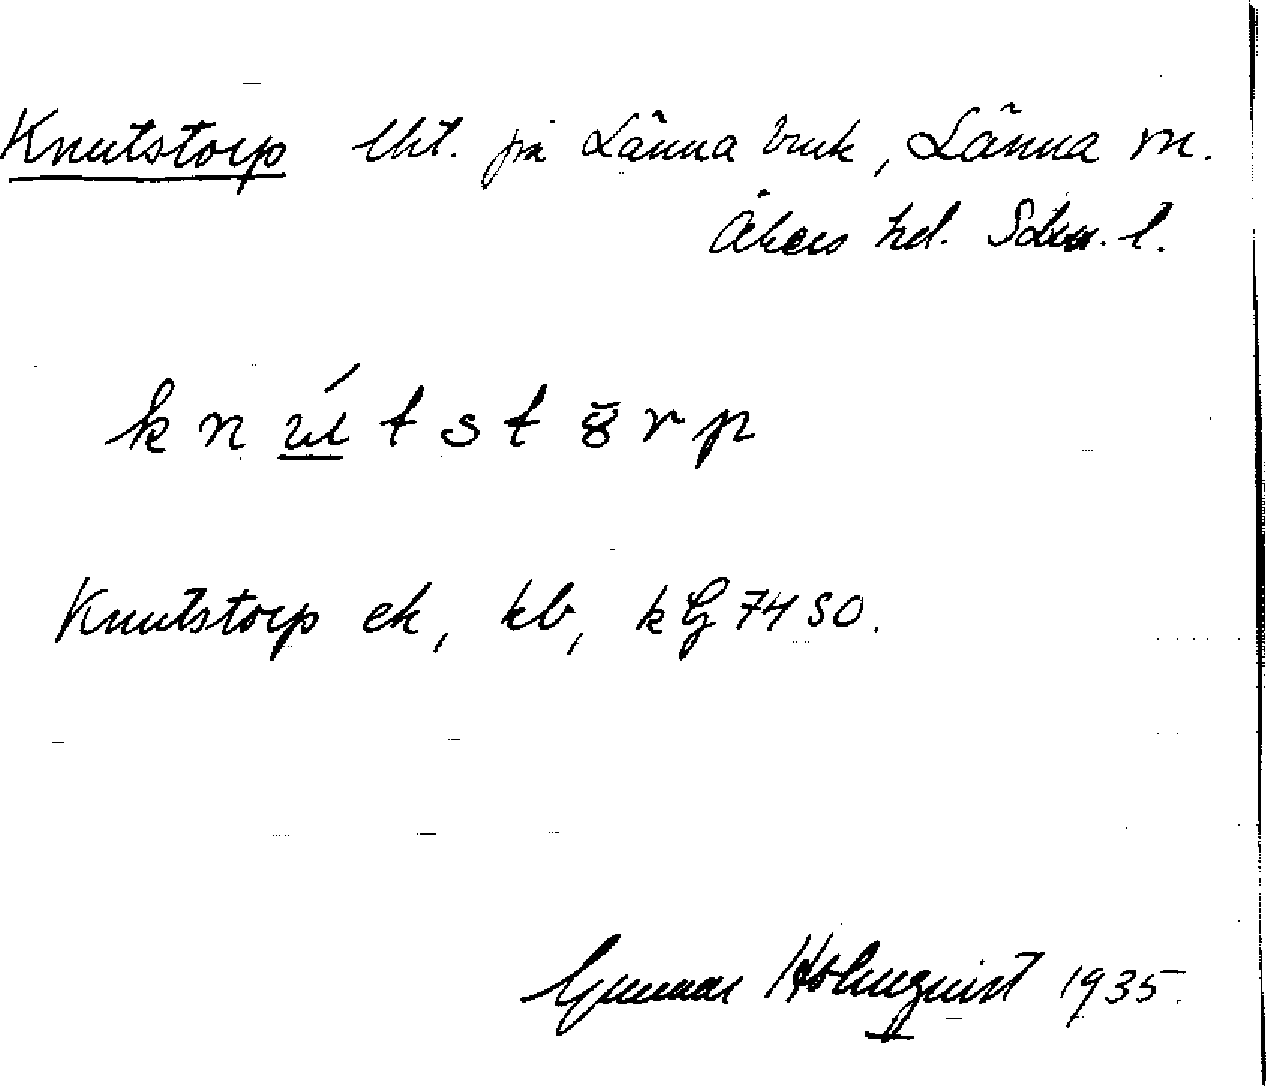 Knutstorp lht. på Länna bruk, Länna sn.
Åkers hd. Sdm. l.
k n ú t s t r p
Knutstorp ek, kb, kG 74 SO.
Gunnar Holmquist 1935.